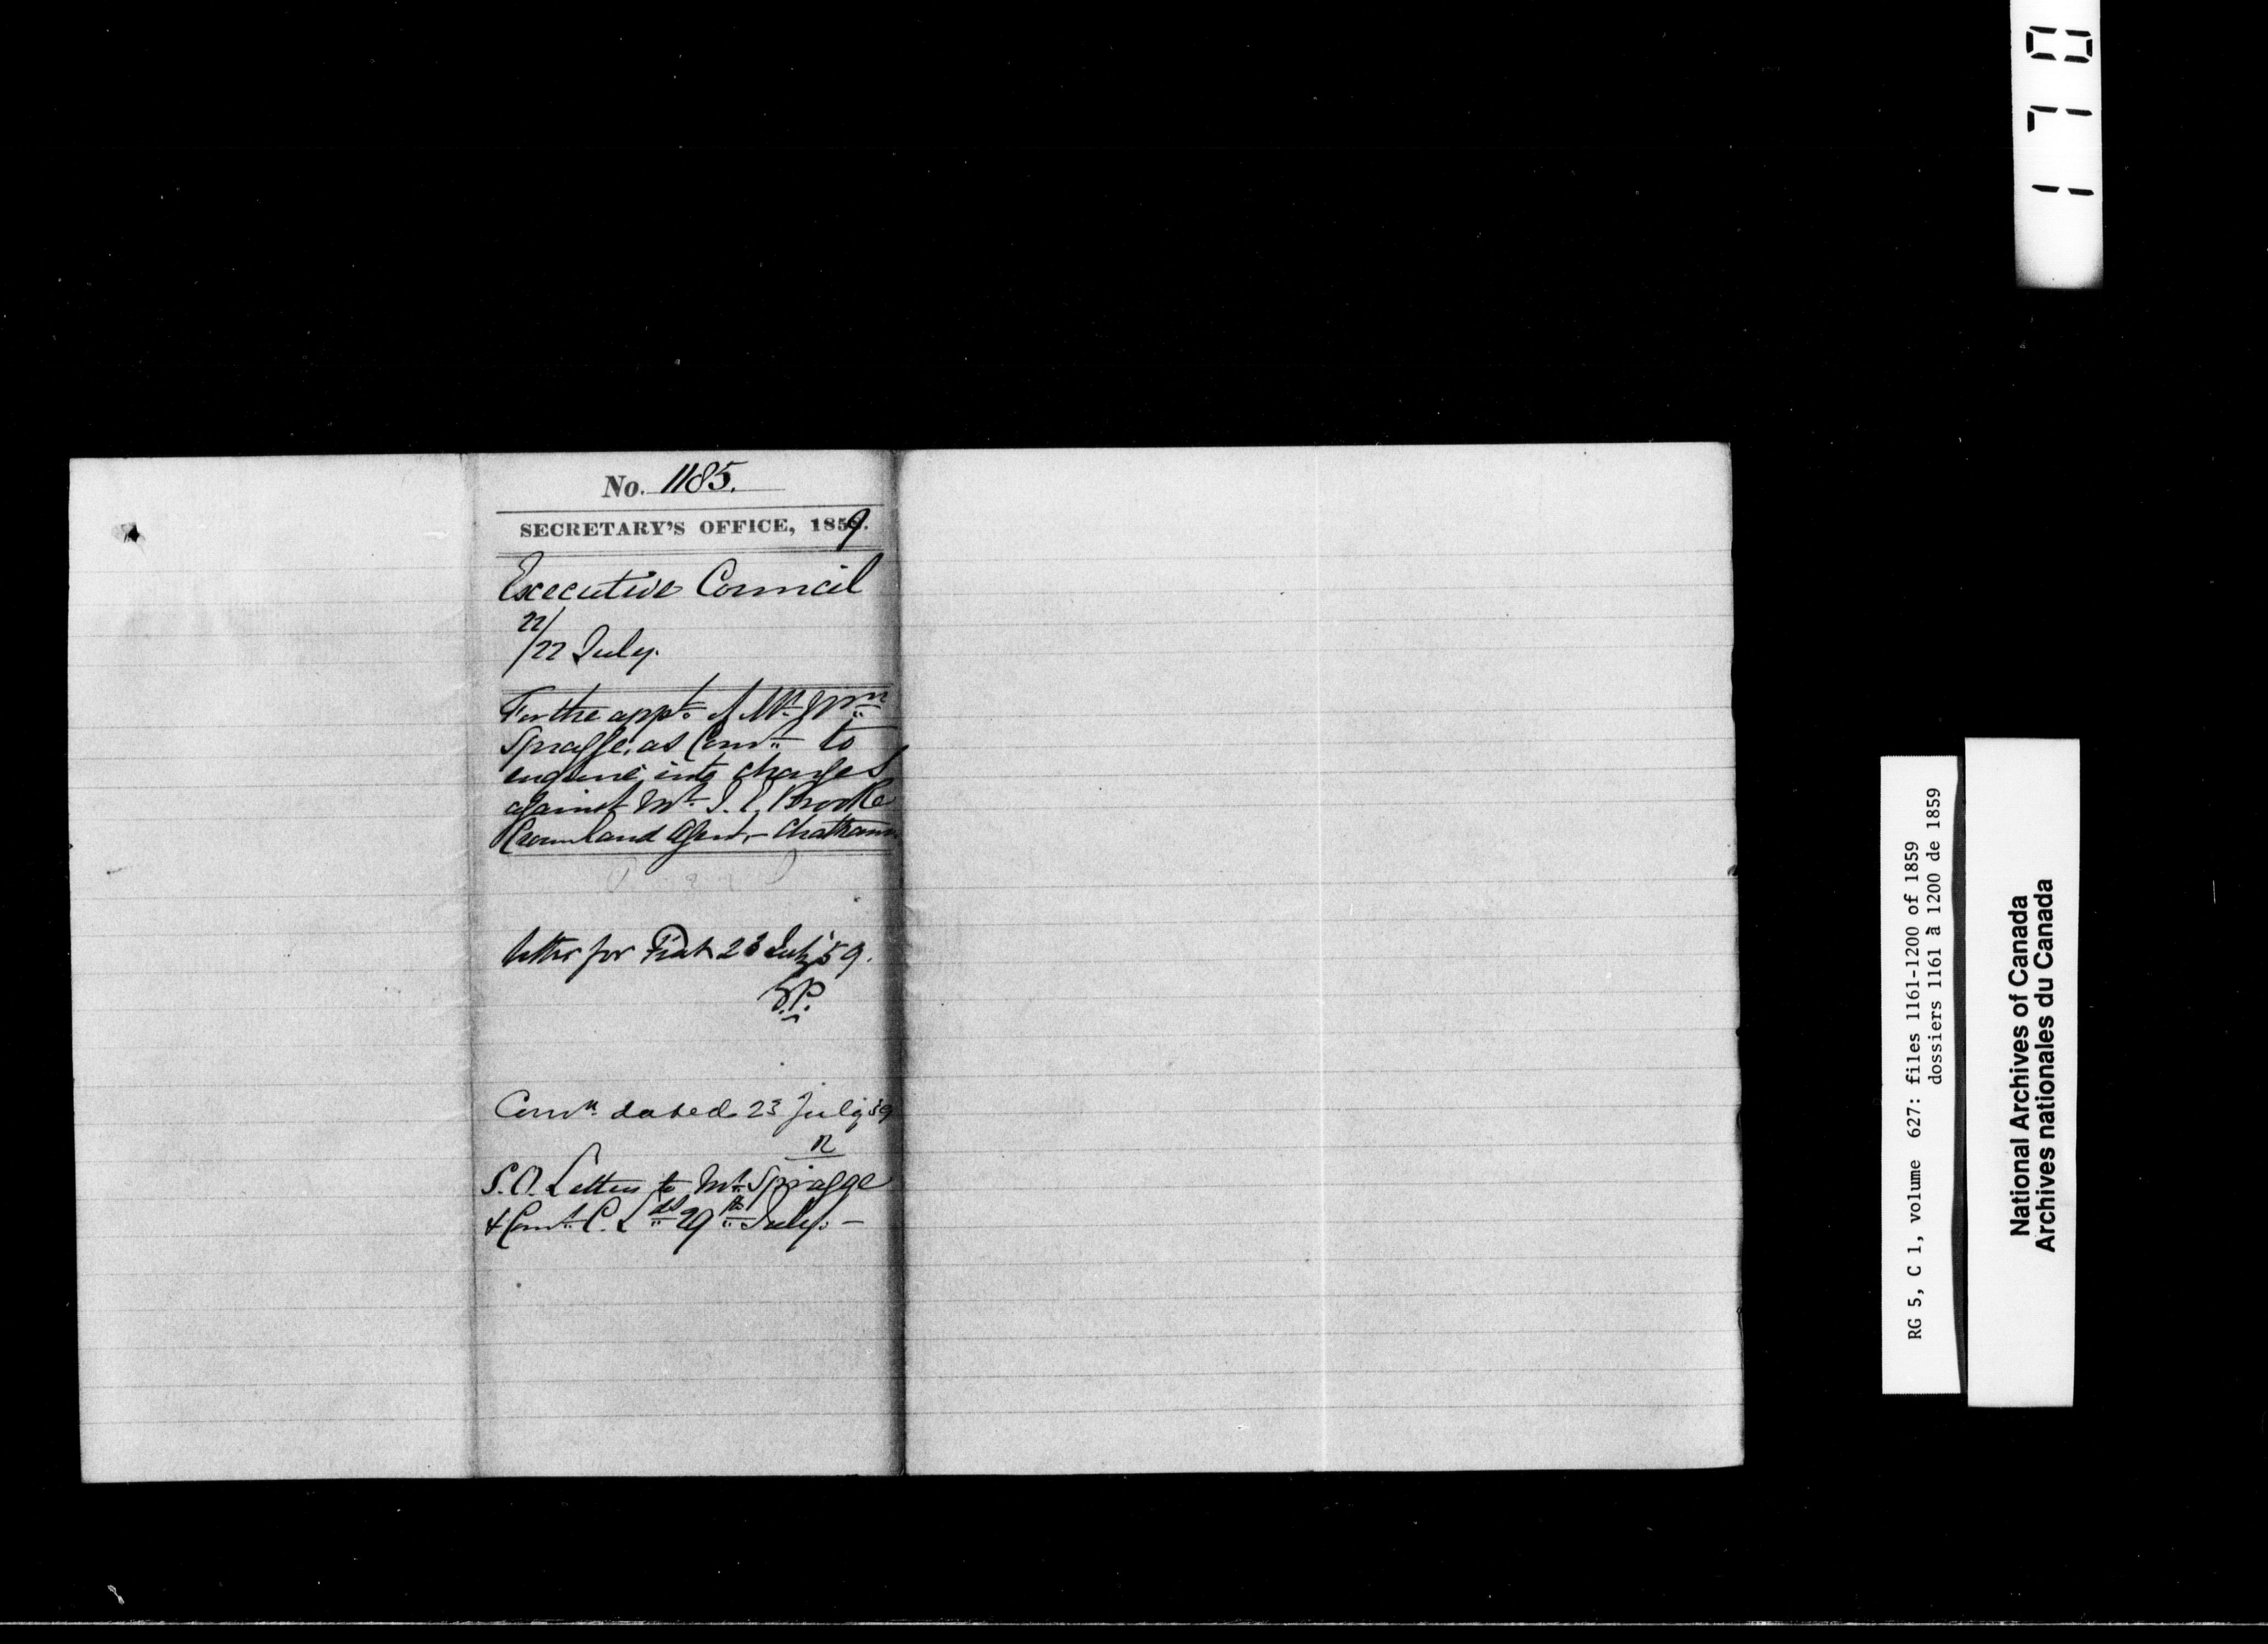 No. 1185.
SECRETARY'S OFFICE, 1859.
Executive Council
22/
/22 July.
For the appt. of Mr. Wm
Spragge, as Comr. to
enquire into charges
against Mr. J. E. Brooke
Crown Land Agent - Chatham
letter for Fiat 23 July '59.
Comn. dated 23 July 59
S.O. Letters to Mr. Spragge
& Comr. C. Lds 29th July. -
1170
RG 5, C 1, volume 627: files 1161-1200 of 1859
dossiers 1161 à 1200 de 1859
National Archives of Canada
Archives nationales du Canada